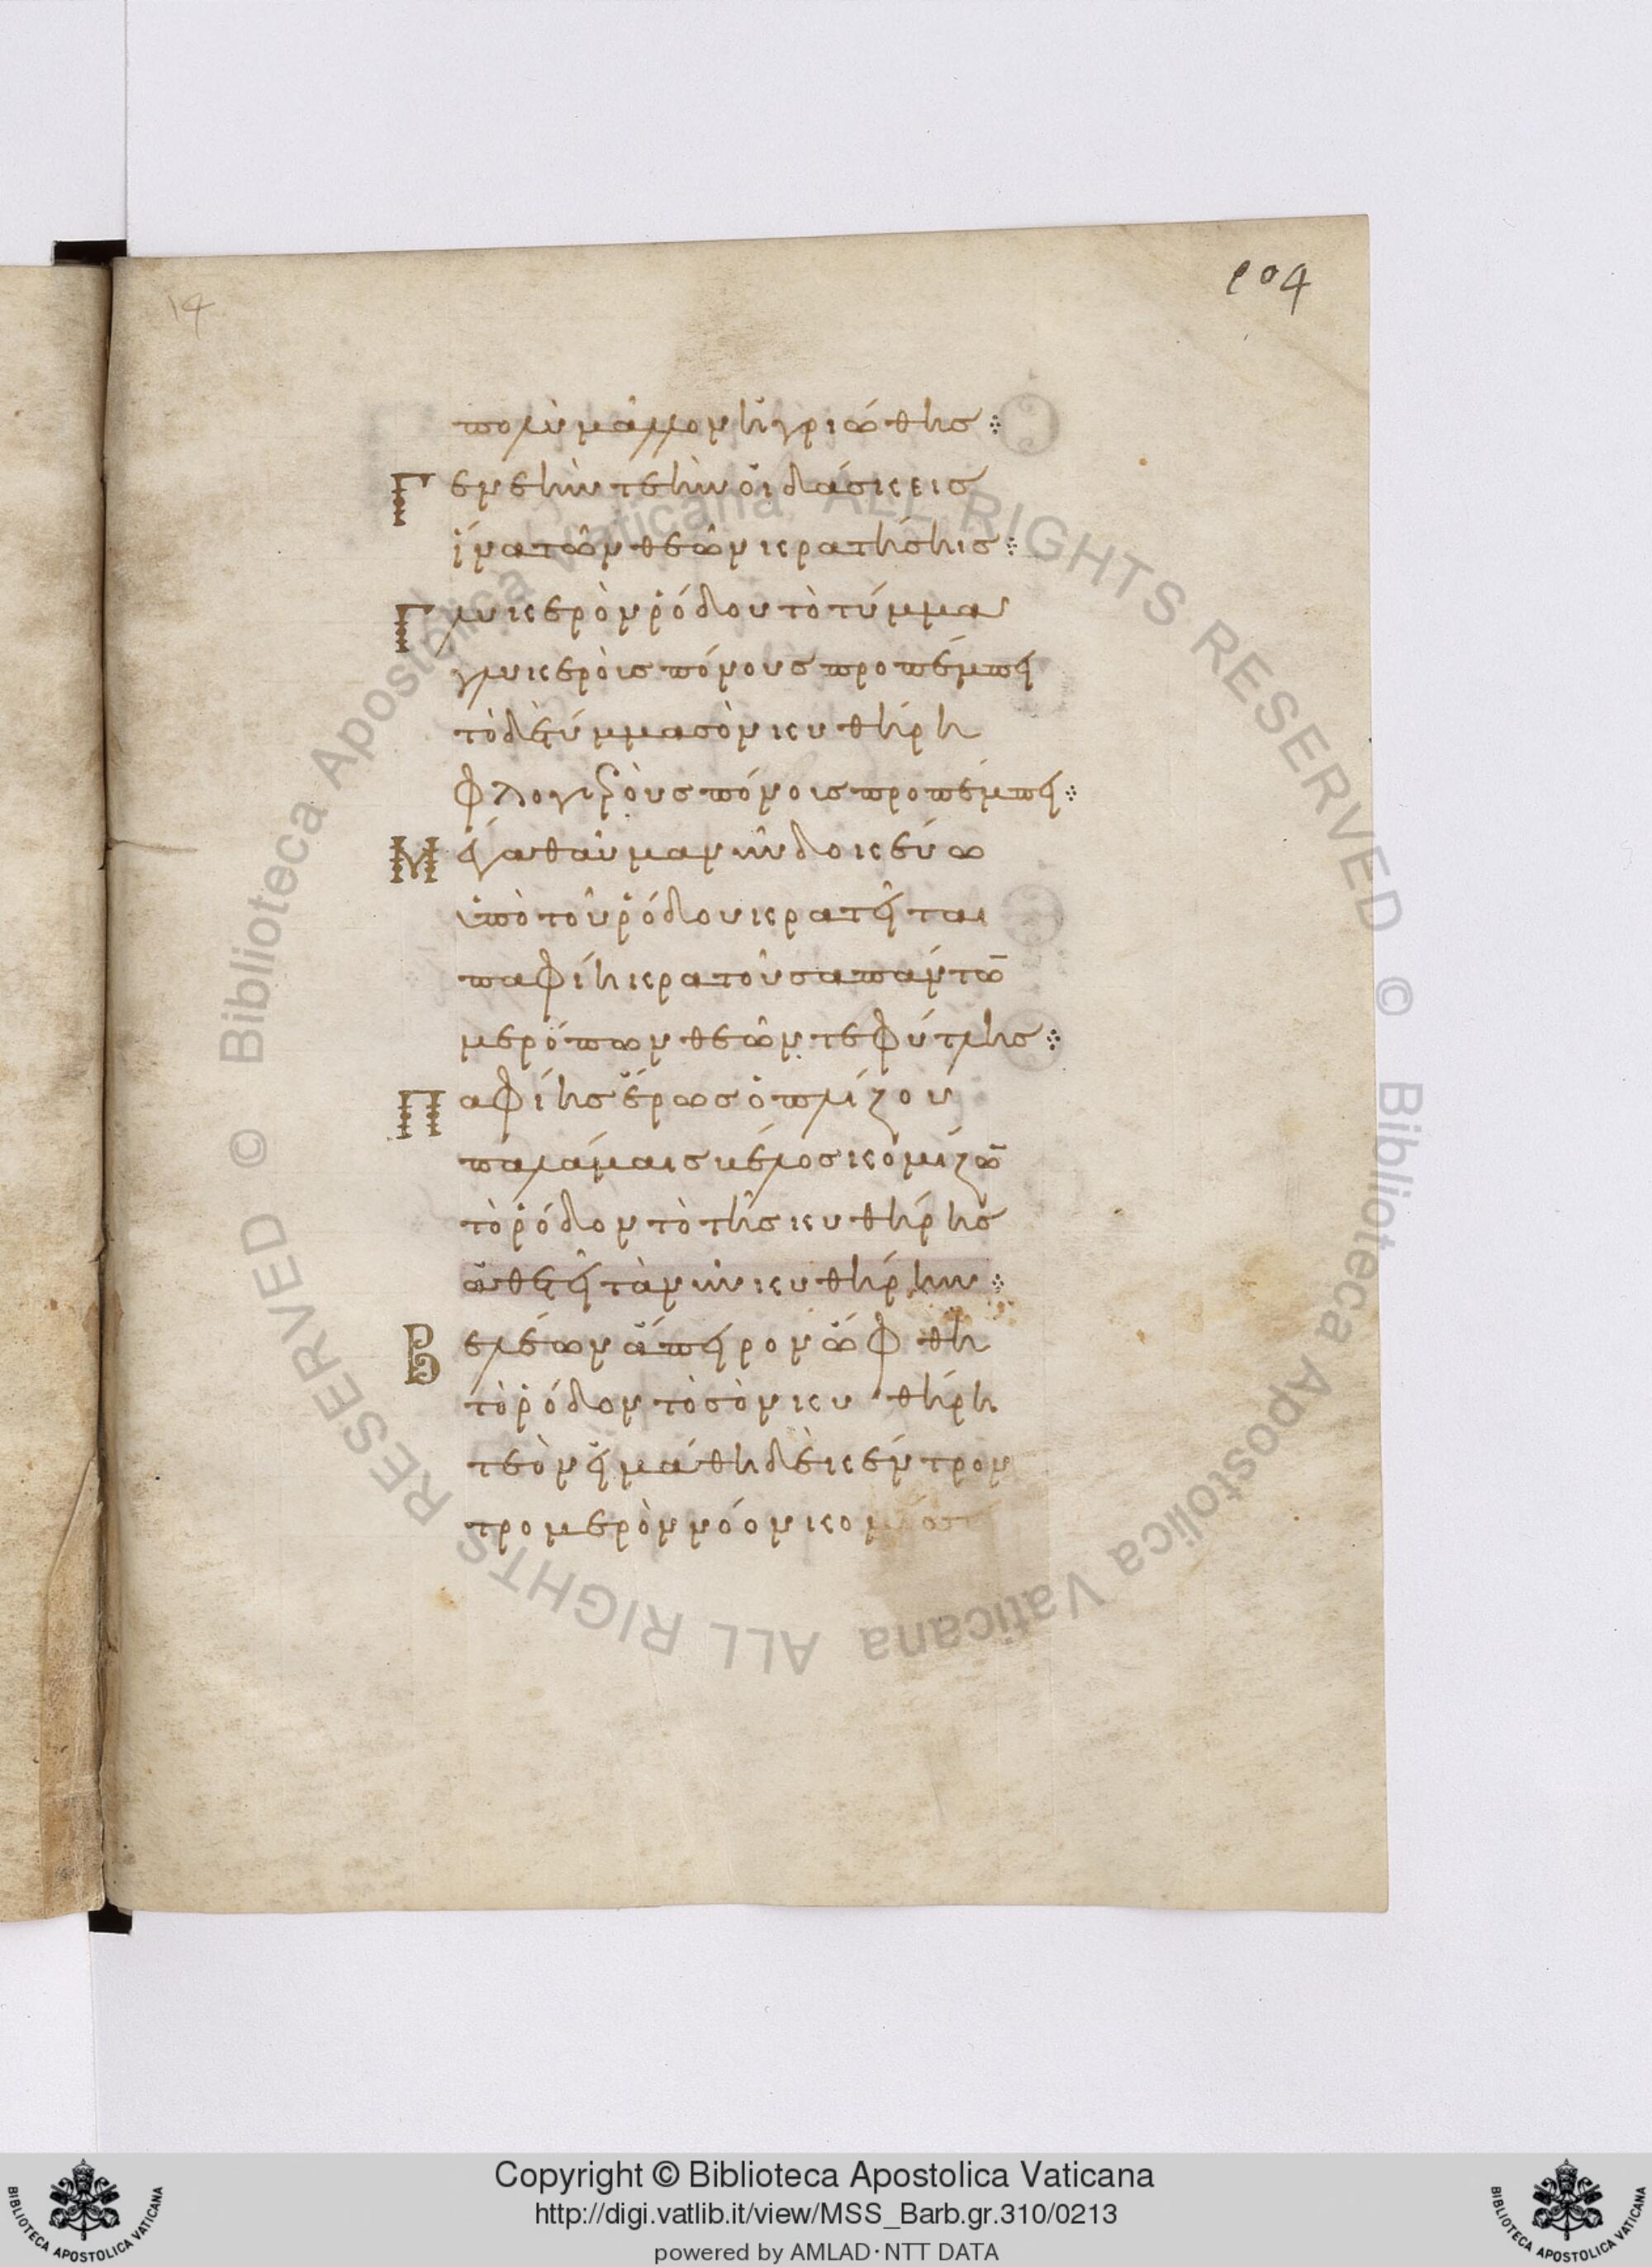 104
14
πολὺ μᾶλλον ἠγριώθης ⁘
Γενετὴν τεὴν διδάσκεις
ἵνα τῶν θεῶν κρατήσηις ⁘
Γλυκερὸν ῥόδου τὸ τύμμα
γλυκεροῖς πόνους προπέμπει
τὸ δὲ τύμμα σὸν κυθήρη
φλογεροὺς πόνοις προπέμπει ⁘
Μέγα θαῦμα νῦν δοκεύω
ὑπὸ τοῦ ῥόδου κρατεῖται
παφίη κρατοῦσα πάντων
μερόπων θεῶν τε φύτλης ⁘
Παφίης ἔρως ὁπλίζου
παλάμαις βέλος κομίζων
τὸ ῥόδον τὸ τῆς κυθήρης
ὠθεεῖ τὰ νῦν κυθήρην ⁘
Βελέων ἄπειρον ὤφθη
τὸ ῥόδον τὸ σὸν κυθήρη
τεὸν εἷμα θη δὲ κέντρον
τρομερὸν νόον κομ
Copyright © Biblioteca Apostolica Vaticana
http://digi.vatlib.it/view/MSS_Barb.gr.310/0213
powered by AMLAD·NTT DATA
BIBLIOTECA APOSTOLICA VATICANA
BIBLIOTECA APOSTOLICA VATICANA
© Biblioteca Apostolica Vaticana ALL RIGHTS RESERVED © Biblioteca Apostolica Vaticana ALL RIGHTS RESERVED